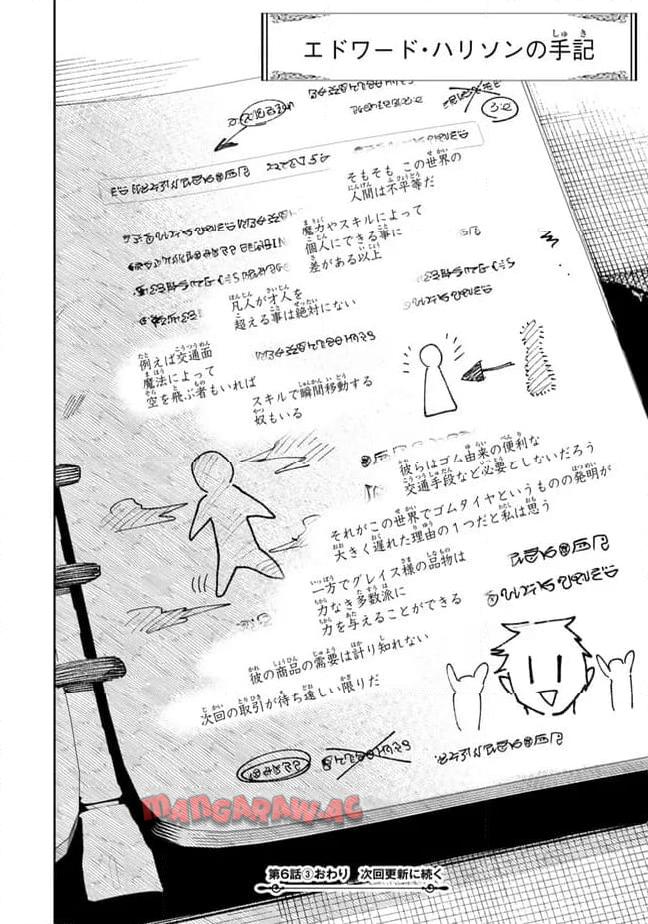 エドワード・ハリソンの手記
そもそも この世界の
人間は不平等だ
魔力やスキルによって
個人にできる事に
差がある以上
凡人が才人を
超える事は絶対にない
例えば交通面
魔法によって
空を飛ぶ者もいれば
スキルで瞬間移動する
奴もいる
彼らはゴム由来の便利な
交通手段など必要としないだろう
それがこの世界でゴムタイヤというものの発明が
大きく遅れた理由の1つだと私は思う
一方でグレイス様の品物は
力なき多数派に
力を与えることができる
彼の商品の需要は計り知れない
次回の取引が待ち遠しい限りだ
MANGARAW.AC
第6話③おわり 次回更新に続く